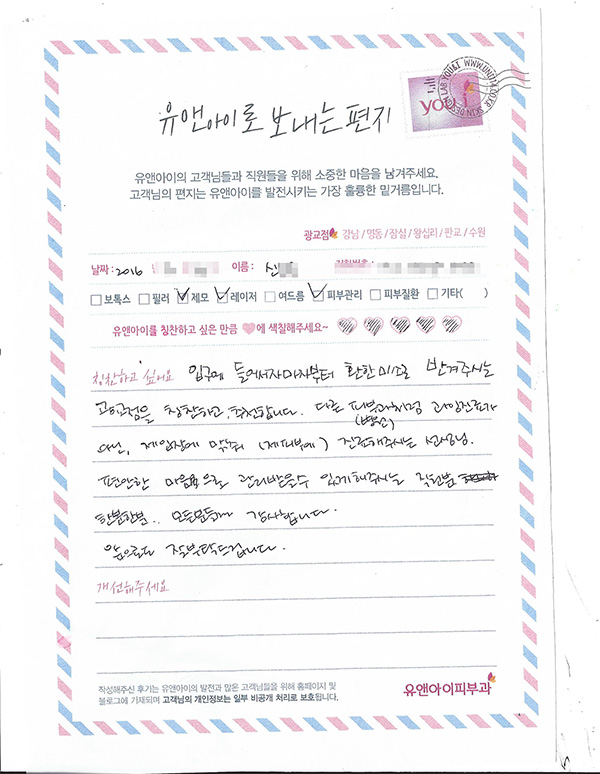 YOU&I WWW.UNDI4.CO.KR SKIN DESIGN LAB
you i
유앤아이로 보내는 편지
유앤아이의 고객님들과 직원들을 위해 소중한 마음을 남겨주세요.
고객님의 편지는 유앤아이를 발전시키는 가장 훌륭한 밑거름입니다.
광교점 강남 / 명동 / 잠실 / 왕십리 / 판교 / 수원
날짜 : 2016 이름 : 신
보톡스 필러 제모 레이저 여드름 피부관리 피부질환 기타( )
유앤아이를 칭찬하고 싶은 만큼 에 색칠해주세요~
칭찬하고 싶어요 입구에 들어서자마자부터 환한 미소로 반겨주시는
광교점을 칭찬하고, 추천합니다. 다른 피부과처럼 과잉진료가
(병원)
아닌, 제입장에 맞춰 (제피부에) 진료해주시는 선생님.
편안한 마음으로 관리받을수 있게해주시는 직원분
한분한분.. 모든분들께 감사합니다.
앞으로도 잘부탁드립니다.
개선해주세요
작성해주신 후기는 유앤아이의 발전과 많은 고객님들을 위해 홈페이지 및
블로그에 기재되며 고객님의 개인정보는 일부 비공개 처리로 보호됩니다.
유앤아이피부과